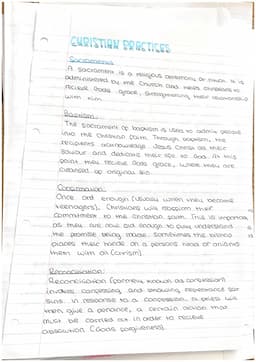 CHRISTIAN PRACTICES
Sacraments
A sacrament is a religious ceremony or ritual. It is
administered by the church and helps christians to
recieve Gods grace, strengthening their relationship
with Him.
Baptism:
The sacrament of baptism is used to admit people
into the Christian faith. Through baptism, the
recipients acknowledge Jesus Christ as their
saviour and dedicate their life to God. At this
point they recieve Gods grace, where they are
cleansed of original sin.
Confirmation:
Once old enough (usually when they become
teenagers), Christians will reaffirm their
commitment to the christian faith. This is important
as they are now old enough to fully understand
the promise being made. Sometimes the bishop
places their hands on a persons head or anoints
them with oil (carism).
Reconciliation:
Reconciliation (formerly known as confession)
involves confessing and showing repentance for
sins. In response to a confession, a priest will
then give a penance, a certain action that
must be carried out in order to receive
absolution (Gods forgiveness).